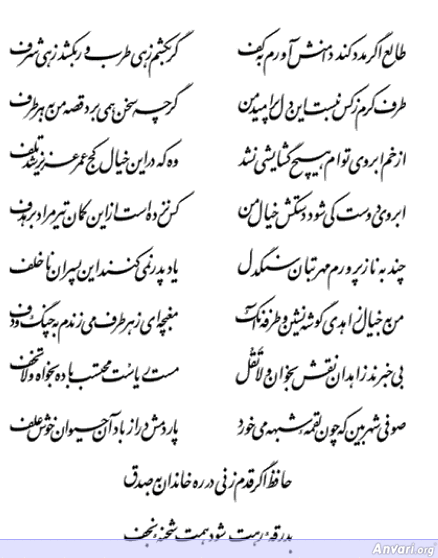 طالع اگر مدد کند دامنش آورم به کف گر بکشم زهی طرب ور بکشد زهی شرف
طرف کرم ز کس نبست این دل پر امید من گرچه سخن همی برد قصه من به هر طرف
از خم ابروی توام هیچ گشایشی نشد وه که در این خیال کج عمر عزیز شد تلف
ابروی دوست کی شود دستکش خیال من کس نزده است از این کمان تیر مراد بر هدف
چند به ناز پرورم مهر بتان سنگدل یاد پدر نمی‌کنند این پسران ناخلف
من به خیال زاهدی گوشه نشین و طرفه آنک مغبچه‌ای ز هر طرف می‌زندم به چنگ و دف
بی خبرند زاهدان نقش بخوان و لا تَقُل مست ریاست محتسب باده بخواه و لا تخف
صوفی شهر بین که چون لقمه شبهه می‌خورد پاردمش دراز باد آن حیوان خوش علف
حافظ اگر قدم زنی در ره خاندان به صدق
بدرقه رهت شود همت شحنه نجف
Anvari.org